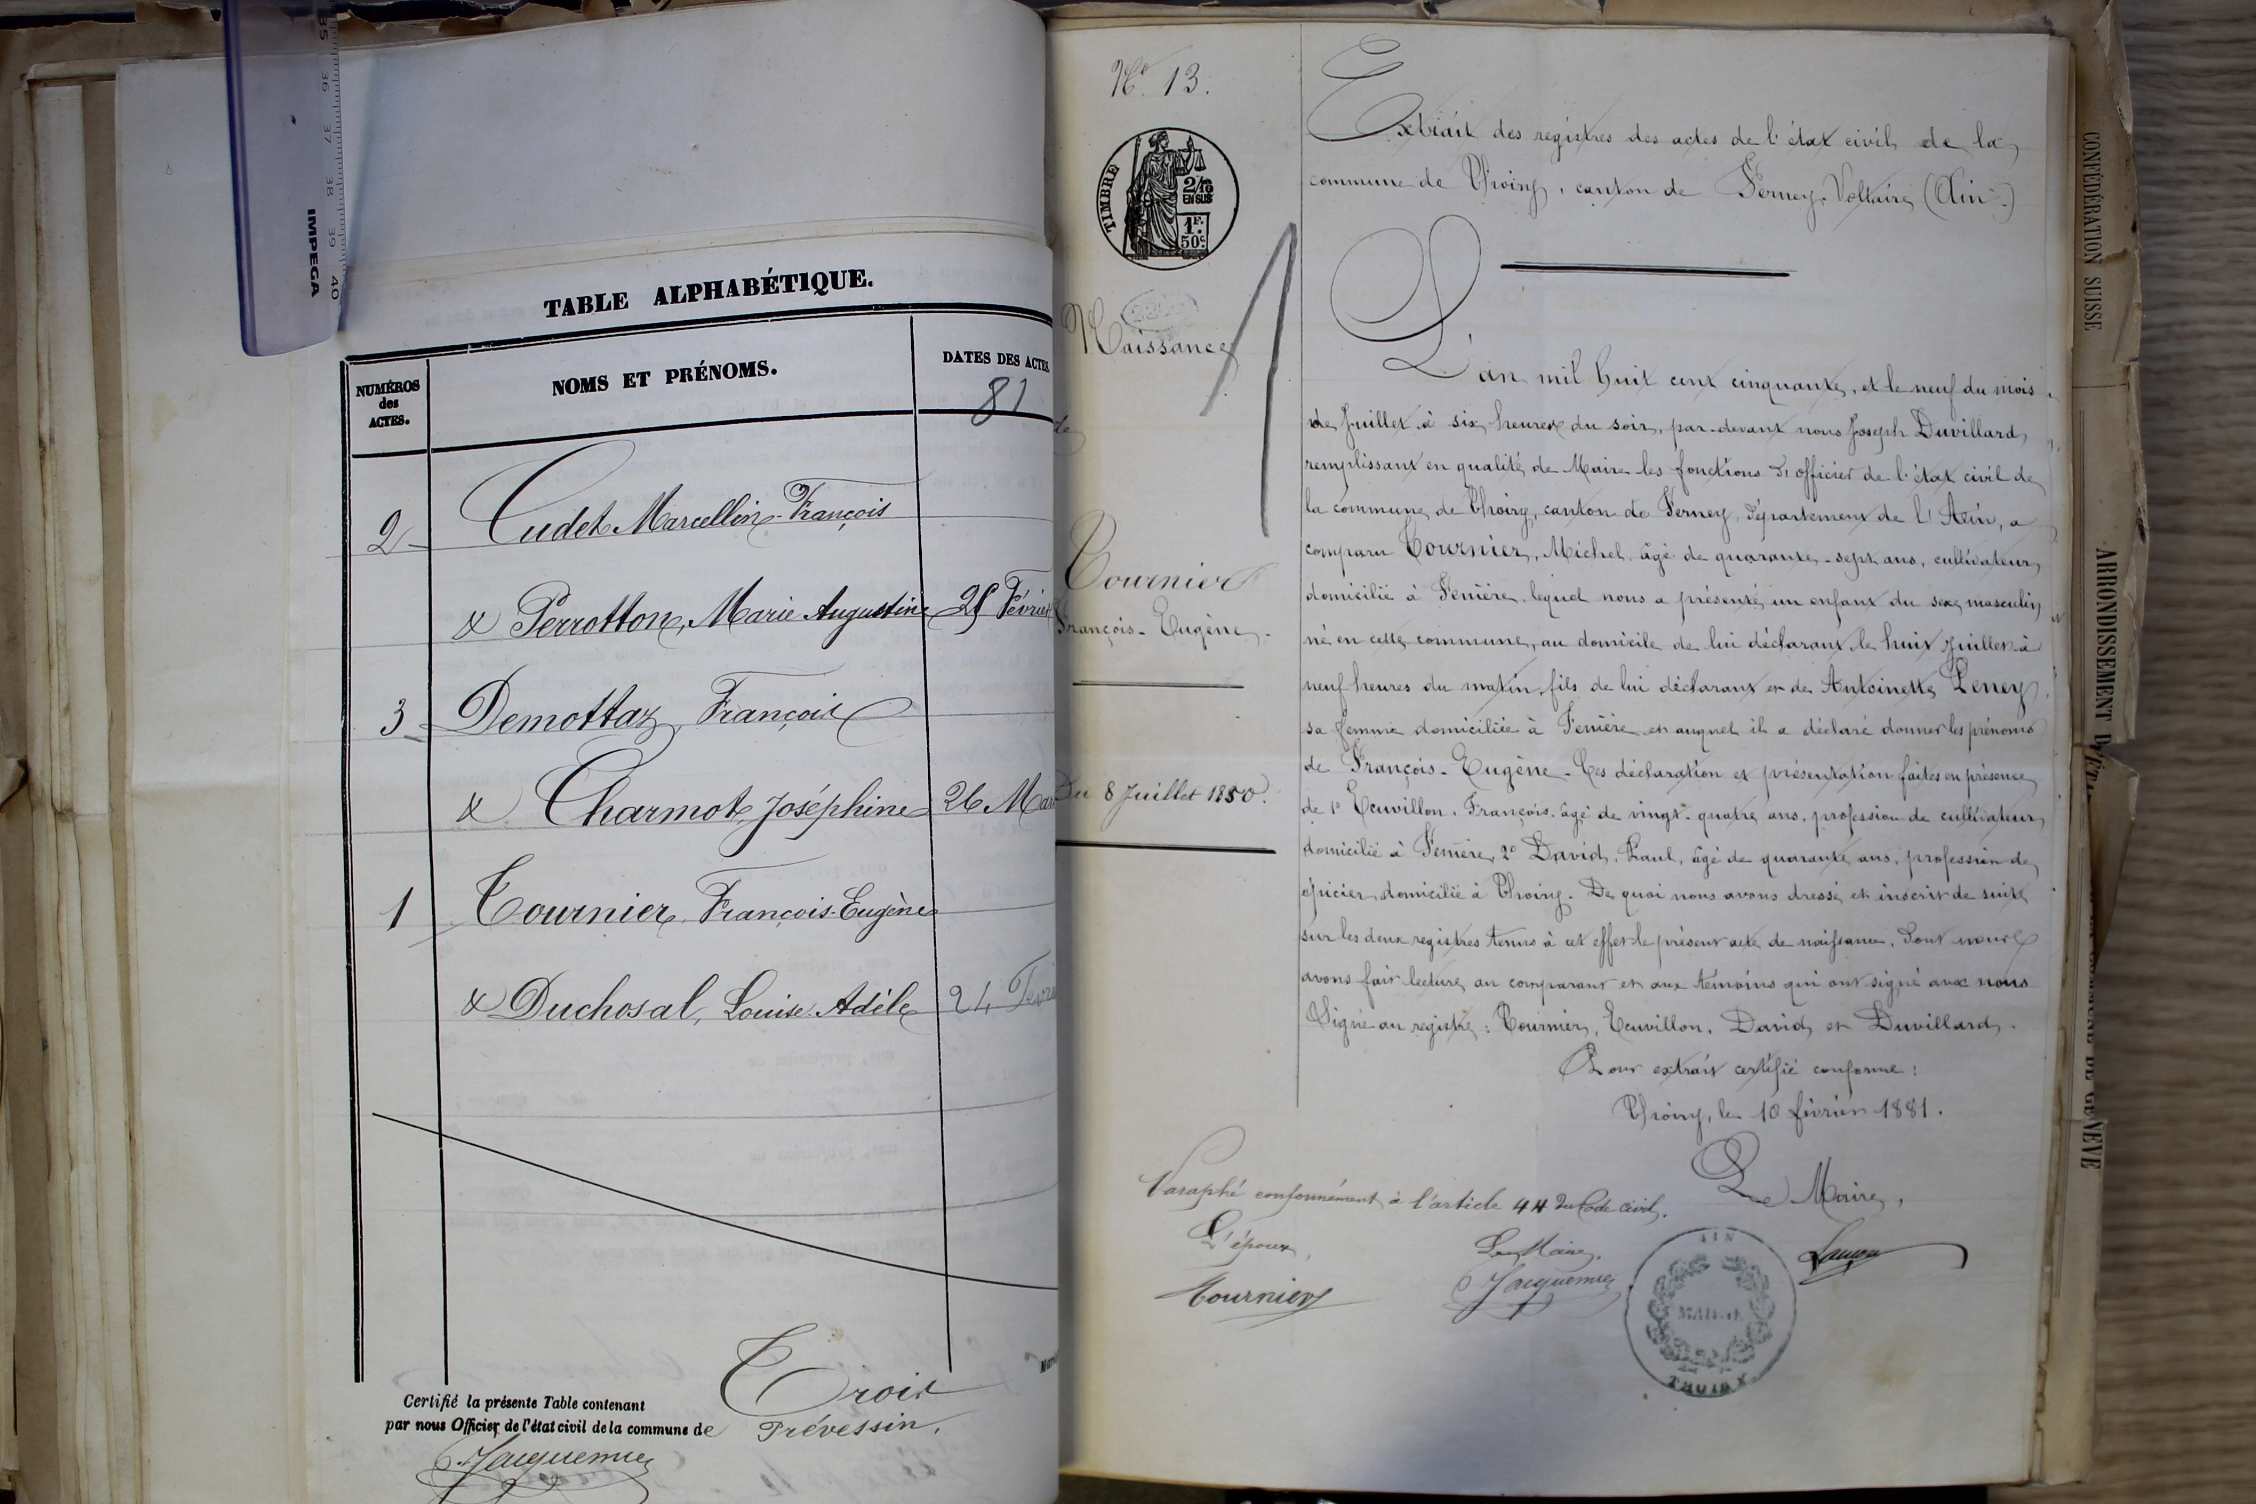 35 36 37 38 39 40
IMPEGA
TABLE ALPHABÉTIQUE.
NUMÉROS des ACTES.
NOMS ET PRÉNOMS.
DATES DES ACTES
81
2 Cudet Marcellin-François
& Perrotton, Marie Augustine 25 Février
3 Demottaz, François
& Charmot, Joséphine 26 Mars
1 Tournier, François-Eugène
& Duchosal, Louise Adèle 24 Février
Certifié la présente Table contenant Trois
par nous Officier de l'état civil de la commune de Prévessin.
Jacquemier
No. 13.
TIMBRE
2/10
EN SUS
1F.
50c.
Naissance
de
Tournier
François-Eugène.
Du 8 Juillet 1850.
Extrait des registres des actes de l'état civil de la
commune de Thoiry, canton de Ferney-Voltaire (Ain.)
L'an mil huit cent cinquante, et le neuf du mois
de Juillet à six heures du soir, par-devant nous Joseph Duvillard,
remplissant en qualité de Maire les fonctions d'officier de l'état civil de
la commune de Thoiry, canton de Ferney, département de l'Ain, a
comparu Tournier, Michel, âgé de quarante-sept ans, cultivateur,
domicilié à Fenière, lequel nous a présenté un enfant du sexe masculin,
né en cette commune, au domicile de lui déclarant, le huit Juillet à
neuf heures du matin, fils de lui déclarant et de Antoinette Peney,
sa femme domiciliée à Fenière et auquel il a déclaré donner les prénoms
de François-Eugène. Ces déclaration et présentation faites en présence
de 1o Teuvillon, François, âgé de vingt-quatre ans, profession de cultivateur,
domicilié à Fenière, 2o David, Paul, âgé de quarante ans, profession de
épicier, domicilié à Thoiry. De quoi nous avons dressé et inscrit de suite
sur les deux registres tenus à cet effet le présent acte de naissance, dont nous
avons fait lecture au comparant et aux témoins qui ont signé avec nous
Signé au registre : Tournier, Teuvillon, David et Duvillard.
Pour extrait certifié conforme :
Thoiry, le 10 février 1881.
Le Maire,
Paraphé conformément à l'article 44 du Code civil.
L'époux,
Tournier
Le Maire,
Jacquemier
AIN
THOIRY
CONFÉDÉRATION SUISSE
ARRONDISSEMENT D'ÉT
DE GENÈVE